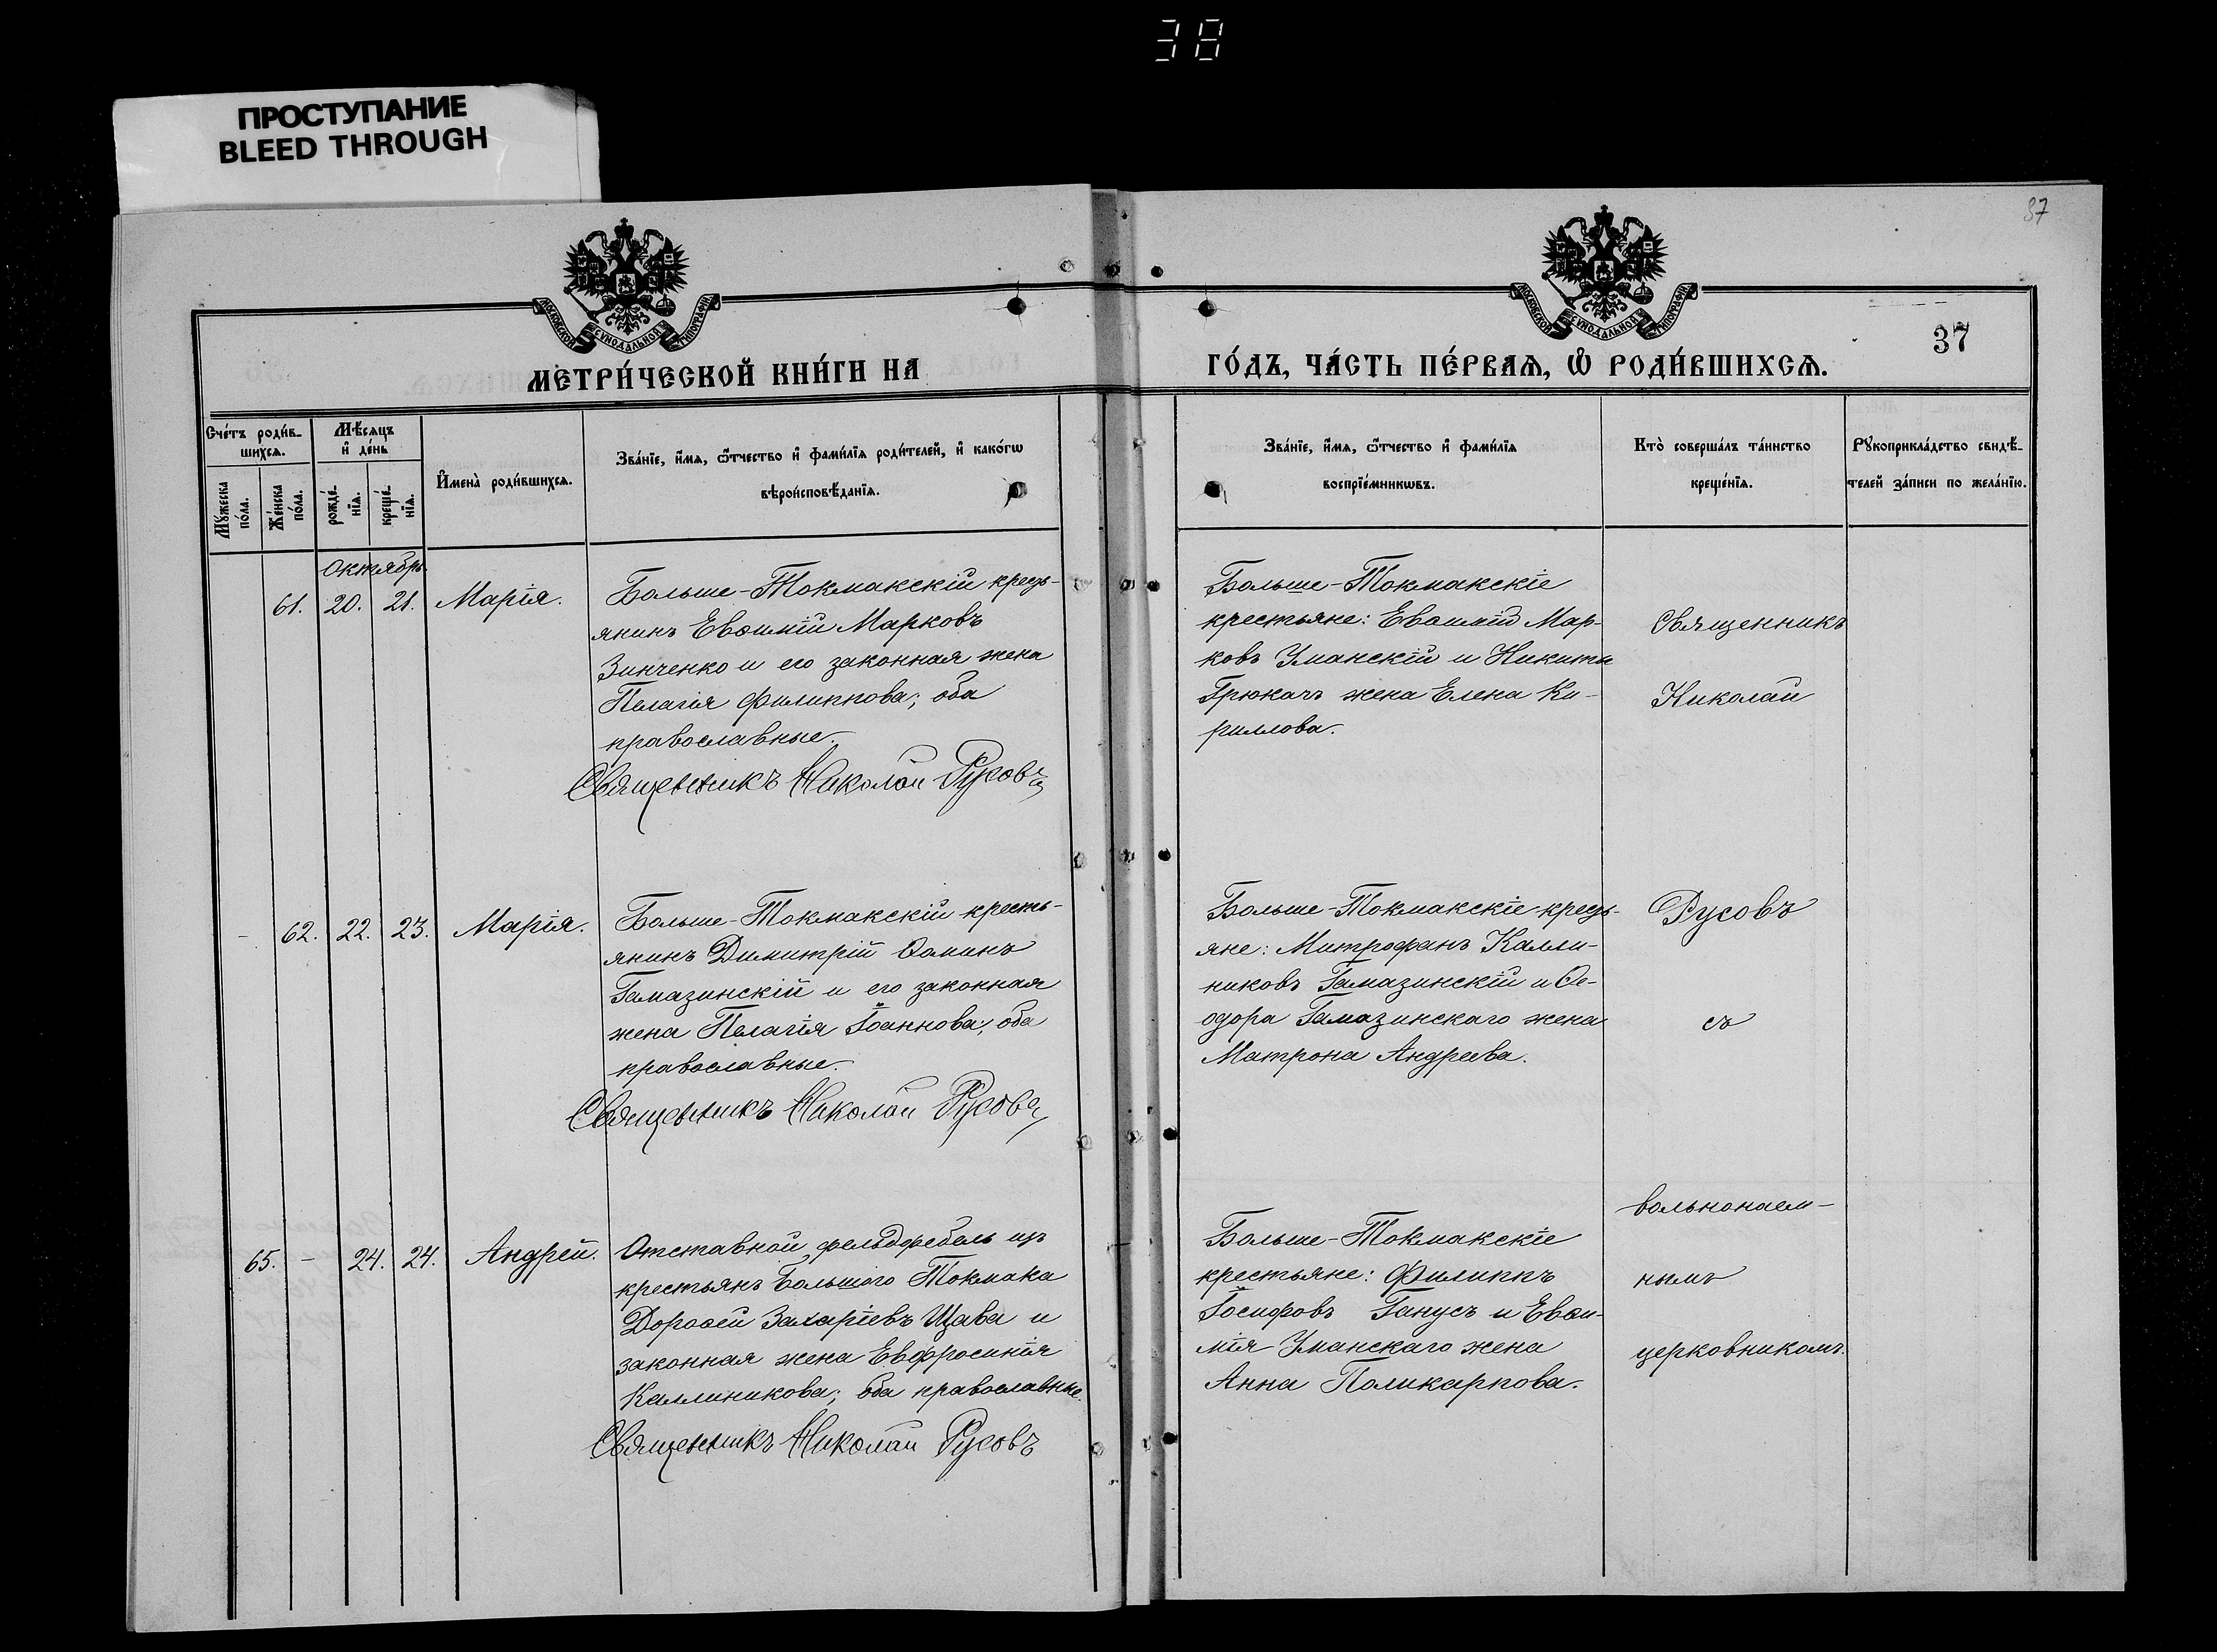 38
ПРОСТУПАНИЕ
BLEED THROUGH
87
МОСКОВСКОЙ СѴНОДАЛЬНОЙ ТИПОГРАФІИ
МОСКОВСКОЙ СѴНОДАЛЬНОЙ ТИПОГРАФІИ
37
МЕТРИ́ЧЕСКОЙ КНИ́ГИ НА
ГО́ДЪ, ЧА́СТЬ ПЕ́РВАѦ, Ѽ РОДИ́ВШИХСѦ.
Сче́тъ роди́в-
шихсѧ.
Му́жеска
по́ла.
Же́нска
по́ла.
Мѣ́сѧцъ
и҆ де́нь
рожде́-
нїѧ.
креще́-
нїѧ.
И҆мена̀ роди́вшихсѧ.
Зва́нїе, и҆́мѧ, ѻ҆́тчество и҆ фами́лїѧ роди́телей, и҆ како́гѡ
вѣроисповѣ́данїѧ.
Зва́нїе, и҆́мѧ, ѻ҆́тчество и҆ фами́лїѧ
воспрїе́мникѡвъ.
Кто̀ соверша́лъ та́инство
креще́нїѧ.
Рукоприкла́дство свидѣ́-
телей за́писи по жела́нїю.
Октябрь
61. 20. 21. Марія.
Больше-Токмакскій кресть-
янинъ Евѳимій Марковъ
Зинченко и его законная жена
Пелагія Филиппова; оба
православные.
Священникъ Николай Русовъ
Больше-Токмакскіе
крестьяне: Евѳимій Мар-
ковъ Уманскій и Никиты
Грюкачъ жена Елена Ки-
риллова.
Священникъ
Николай
- 62. 22. 23. Марія.
Больше-Токмакскій кресть-
янинъ Димитрій Ѳоминъ
Гамазинскій и его законная
жена Пелагія Іоаннова; оба
православные.
Священникъ Николай Русовъ
Больше-Токмакскіе кресть-
яне: Митрофанъ Калли-
никовъ Гамазинскій и Ѳе-
одора Гамазинскаго жена
Матрона Андреева.
Русовъ
съ
65. - 24. 24. Андрей.
Отставной фельдфебель изъ
крестьянъ Большого Токмака
Дороѳей Захаріевъ Щава и
законная жена Евфросинія
Каллиникова; оба православные.
Священникъ Николай Русовъ
Больше-Токмакскіе
крестьяне: Филиппъ
Іосифовъ Ганусъ и Евѳи-
мія Уманскаго жена
Анна Поликарпова.
вольнонаем-
нымъ
церковникомъ.